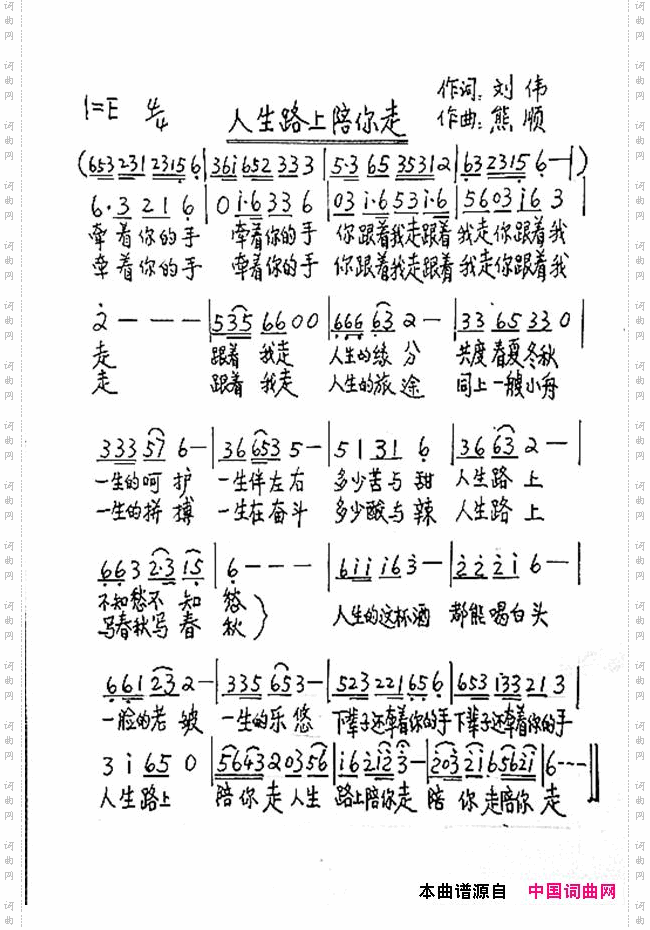 1=E 4/4
人生路上陪你走
作词:刘伟
作曲:熊顺
(653 231 2315 6|36i 652 333|5·3 65 35312|63 2315 6—|)
6·3 2 1 6|0 i·6 33 6|03 i·6 53 i·6|56 03 i6 3|
牵着你的手 牵着你的手 你跟着我走跟着 我走你跟着我
牵着你的手 牵着你的手 你跟着我走跟着 我走你跟着我
2———|535 6600|666 63 2—|33 65 33 0|
走 跟着 我走 人生的缘 分 共度 春夏冬秋
走 跟着 我走 人生的旅 途 同上 一艘小舟
333 57 6—|36 653 5—|51 31 6|36 63 2—|
一生的呵 护 一生伴左右 多少苦与 甜 人生路 上
一生的拼 搏 一生在奋斗 多少酸与 辣 人生路 上
663 2·3 15|6·———|6iii i63—|222i 6—|
不知愁不 知 愁 人生的这杯酒 都能喝白头
写春秋写 春 秋
661 23 2—|335 65 3—|523 221 65 6|653 133 21 3|
一脸的老 皱 一生的乐 悠 下辈子还牵着你的手 下辈子还牵着你的手
3 i 65 0|5643 2 0356|i62i2 3—|2032i 6562i|6———‖
人生路上 陪你走 人生 路上陪你走 陪 你走陪你 走
本曲谱源自 中国词曲网
词曲网